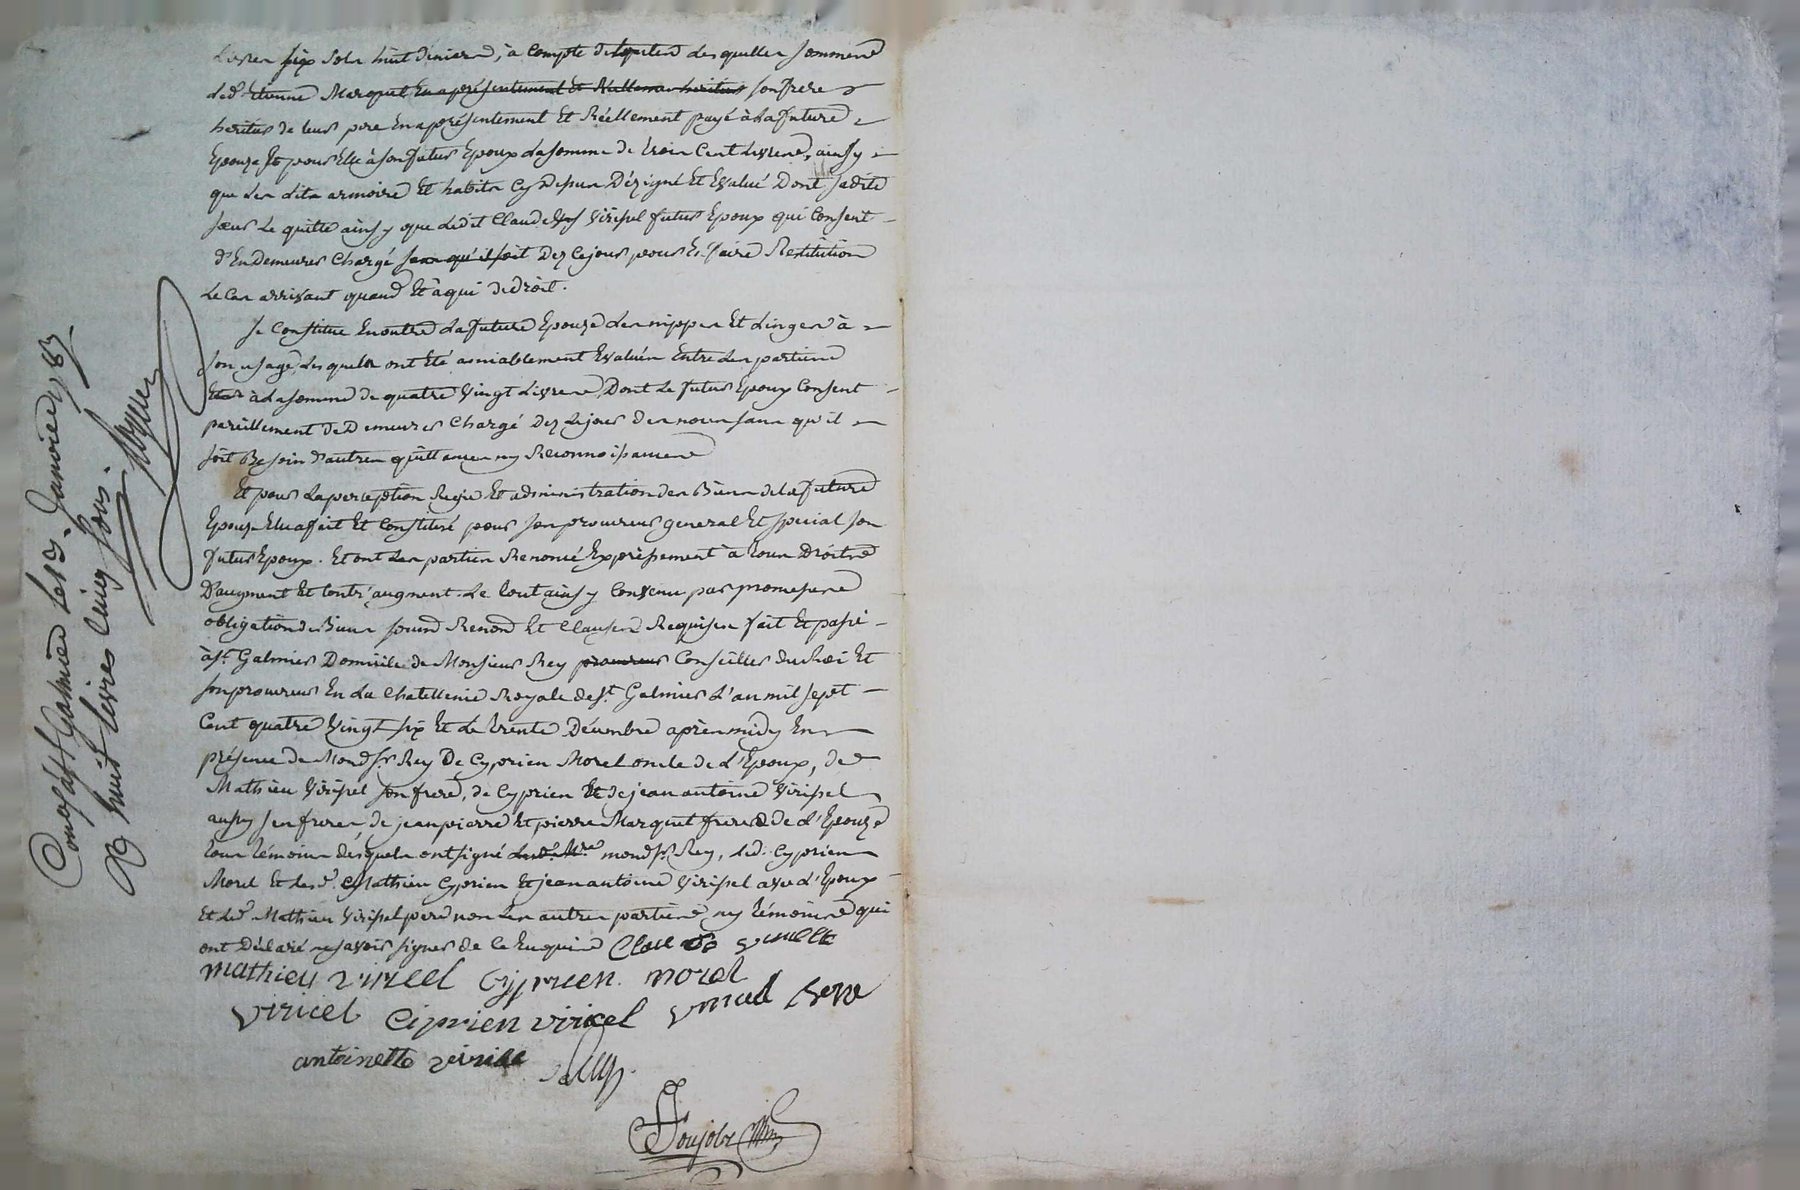 Livres six sols huit deniers, à compte desquelles sommes
led. Etienne Marquet en a présentement et réellement héritier son frere
heritier de leur pere en a présentement et réellement payé à la future
Epouze et pour elle à son futur Epoux la somme de trois cent livres, ainsy
que les dits armoire et habits cy dessus dézigné et evalué dont sadite
sœur le quitte ainsy que ledit Claude Virissel futur Epoux qui consent
d'en demeurer chargé sans qu'il soit dez ce jour pour en faire restitution
le cas arrivant quand et à qui de droit.
Se constitue en outre la future Epouze les nippes et linges à
son usage, lesquels ont été amiablement evalués entre les parties
à la somme de quatre vingt livres dont le futur Epoux consent
pareillement de demeurer chargé dez le jour des noces sans qu'il
soit besoin d'autres quittances ny reconnoissances
Et pour la perception regie et administration des biens de la future
Epouze elle a fait et constitué pour son procureur general et special son
futur Epoux. Et ont les parties renoncé expressement à tous droits
d'augment et contr'augment. Le tout ainsy convenu par promesses
obligation de biens soumd. renond. et clauses requises fait et passé
à St. Galmier domicile de Monsieur Rey procureur conseiller du Roi et
son procureur en la chatellenie Royale de St. Galmier l'an mil sept
cent quatre vingt six et le trente décembre après midy en
présence de mond. Sr. Rey de Cyprien Morel oncle de l'Epoux, de
Mathieu Virissel son frere, de Cyprien et de jean antoine Virissel
aussy ses freres de jean pierre et pierre Marquet freres de l'Epouze
tous témoins desquels ont signé mond. Sr. Rey, led. Cyprien
Morel et lesd. Mathieu Cyprien et jean antoine Virissel avec l'Epoux
et led. Mathieu Virissel pere non les autres parties ny témoins qui
ont déclaré ne savoir signer de ce enquis
mathieu viricel Cyprien morel
viricel Ciprien viricel
antoinette
Controlé à St Galmier le 13. Janvier 1787
R huit livres cinq sous.